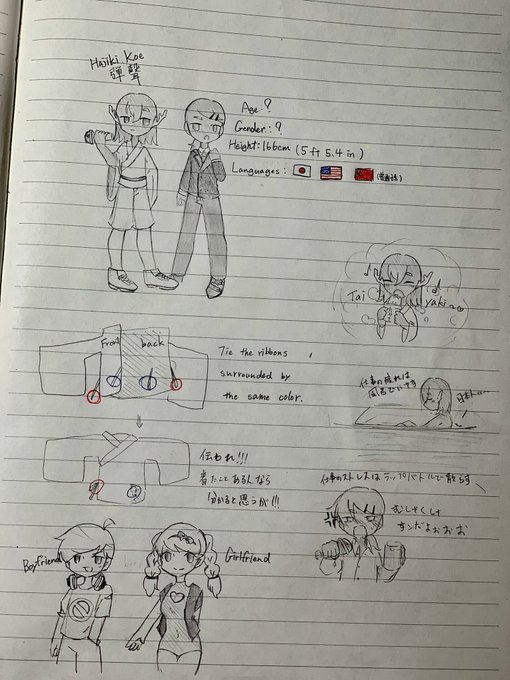 Hajiki Koe
弾聲
Age:?
Gender:?
Height:166cm (5 ft 5.4 in)
Languages:
(普通話)
Tai yaki~
front back
Tie the ribbons
surrounded by
the same color.
仕事の疲れは
風呂でいやす
伝われ!!!
着たことある人なら
分かると思うが!!!
仕事のストレスはラップバトルで散らす
むしゃくしゃ
すんだよぉぉお
Boyfriend
Girlfriend